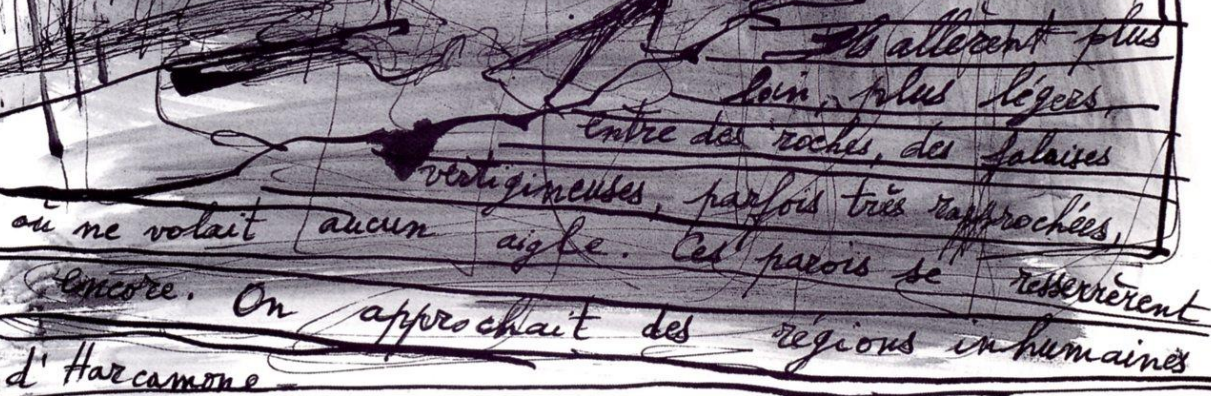 Ils allèrent plus
loin, plus légers,
entre des roches, des falaises
vertigineuses, parfois très rapprochées,
où ne volait aucun aigle. Ces parois se resserrèrent
encore. On approchait des régions inhumaines
d'Harcamone